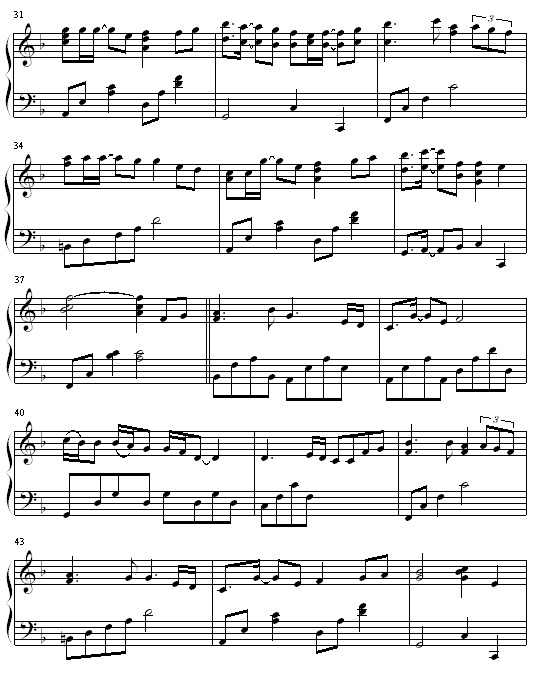 31
3
34
37
40
3
43